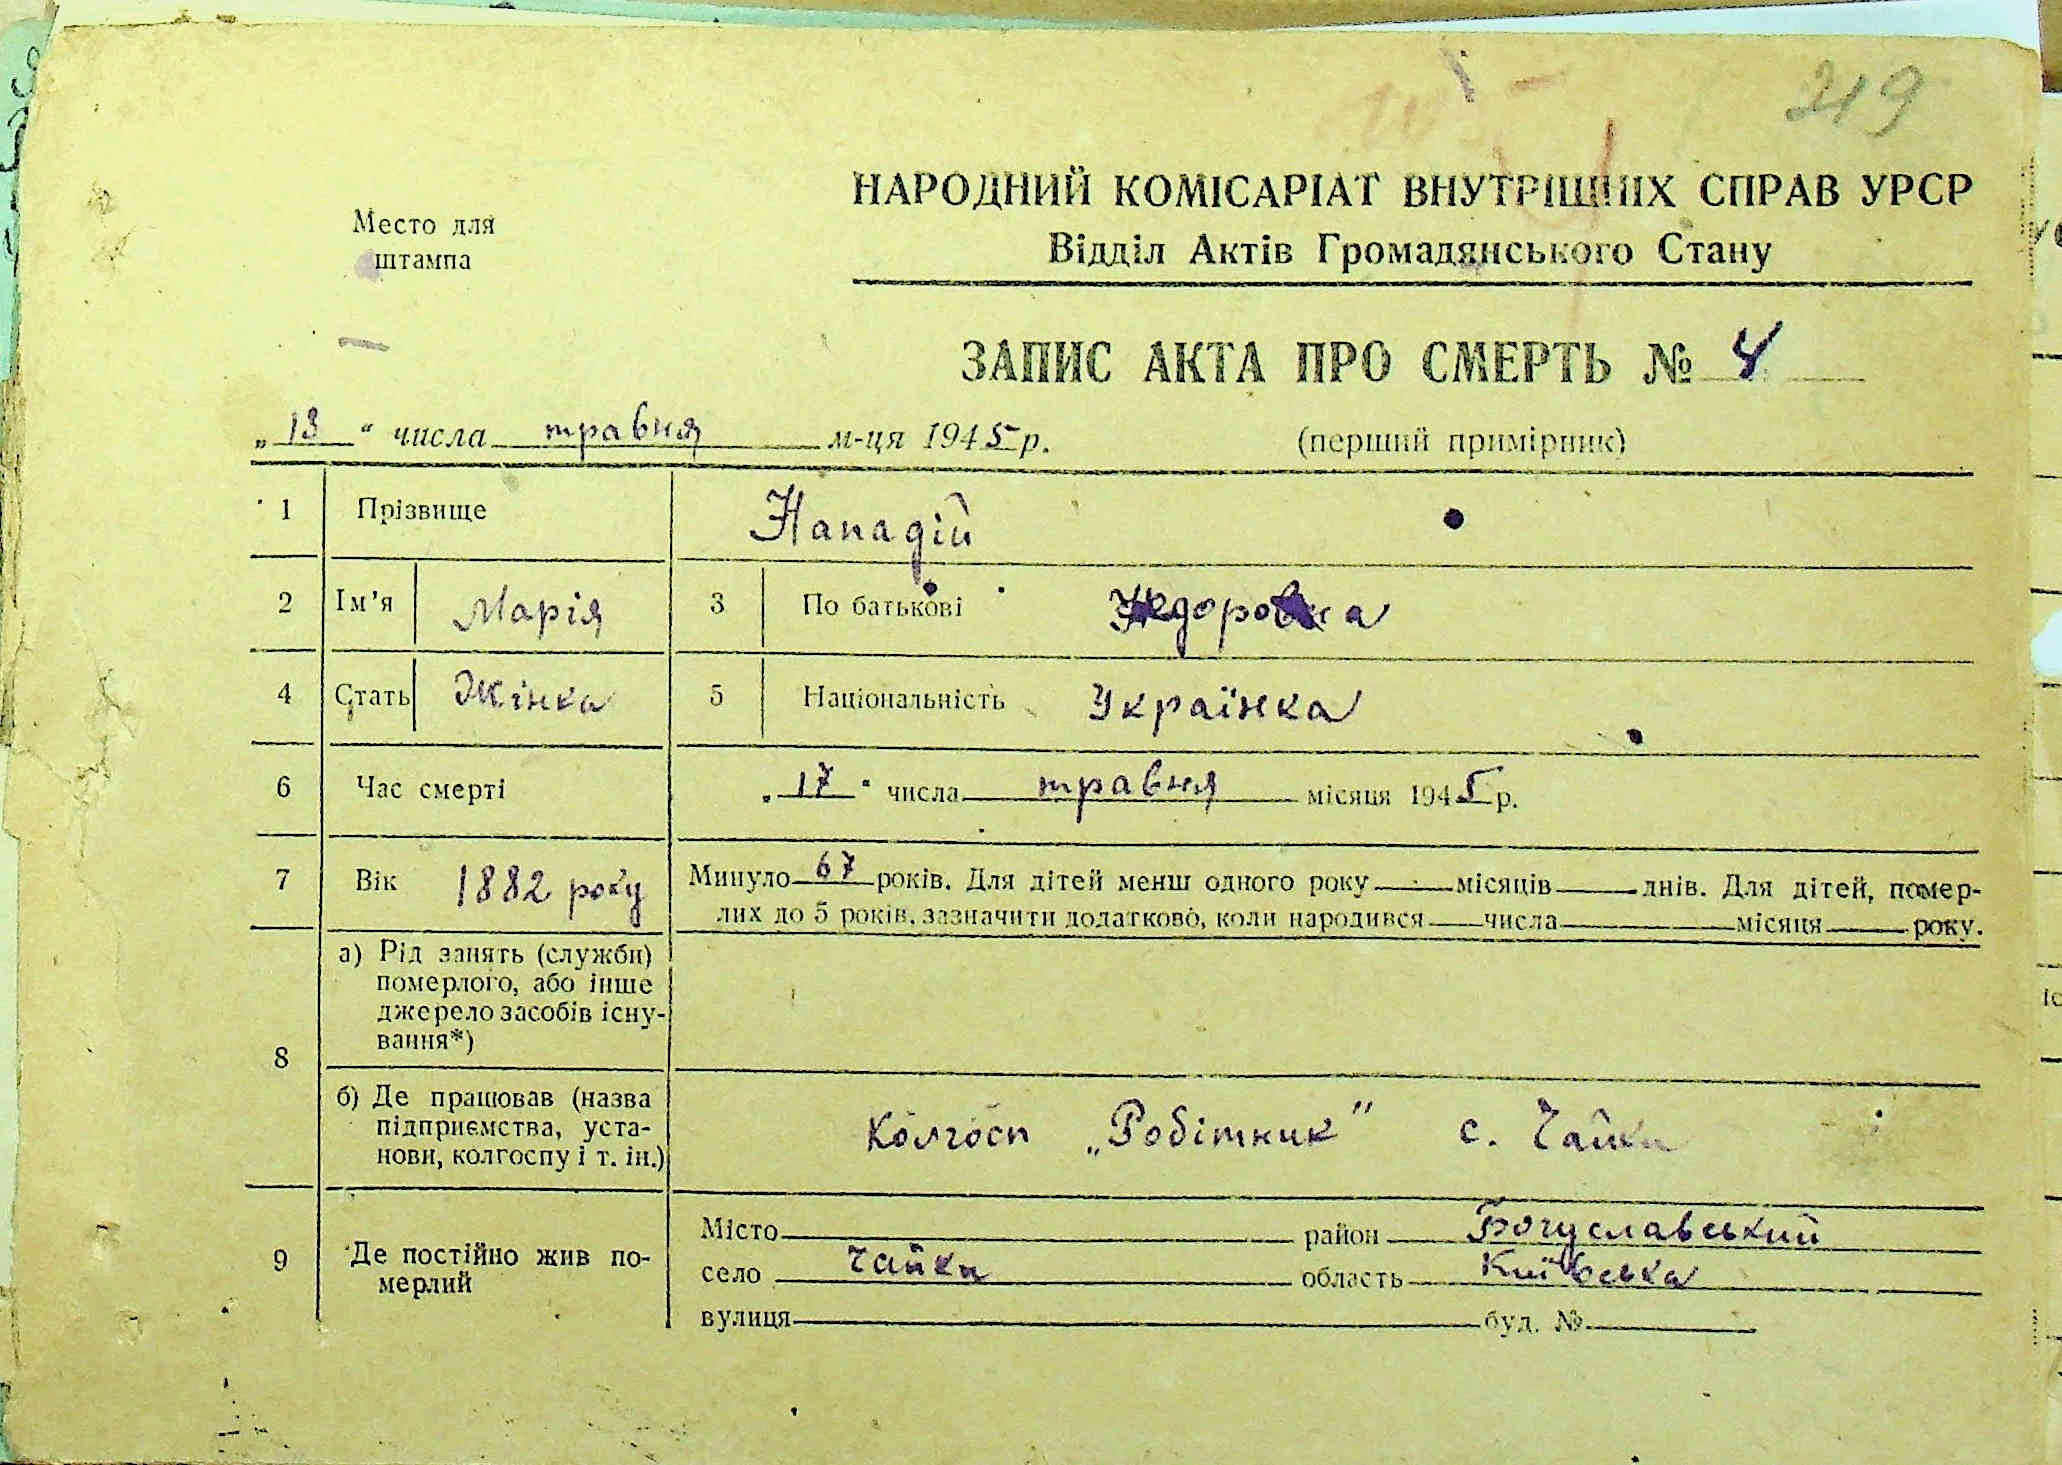 219
Место для
штампа
НАРОДНИЙ КОМІСАРІАТ ВНУТРІШНІХ СПРАВ УРСР
Відділ Актів Громадянського Стану
ЗАПИС АКТА ПРО СМЕРТЬ № 4
„18“ числа травня м-ця 1945 р.
(перший примірник)
1 Прізвище Нападій
2 Ім’я Марія 3 По батькові Федоровна
4 Стать Жінка 5 Національність Українка
6 Час смерті „17“ числа травня місяця 1945 р.
7 Вік 1882 року Минуло 67 років. Для дітей менш одного року місяців днів. Для дітей, помер-
лих до 5 років, зазначити додатково, коли народився числа місяця року.
8
а) Рід занять (служби)
померлого, або інше
джерело засобів існу-
вання*)
б) Де працював (назва
підприємства, уста-
нови, колгоспу і т. ін.)
Колгосп „Робітник" с. Чайки
9 Де постійно жив по-
мерлий
Місто район Богуславський
село Чайки область Київська
вулиця буд. №